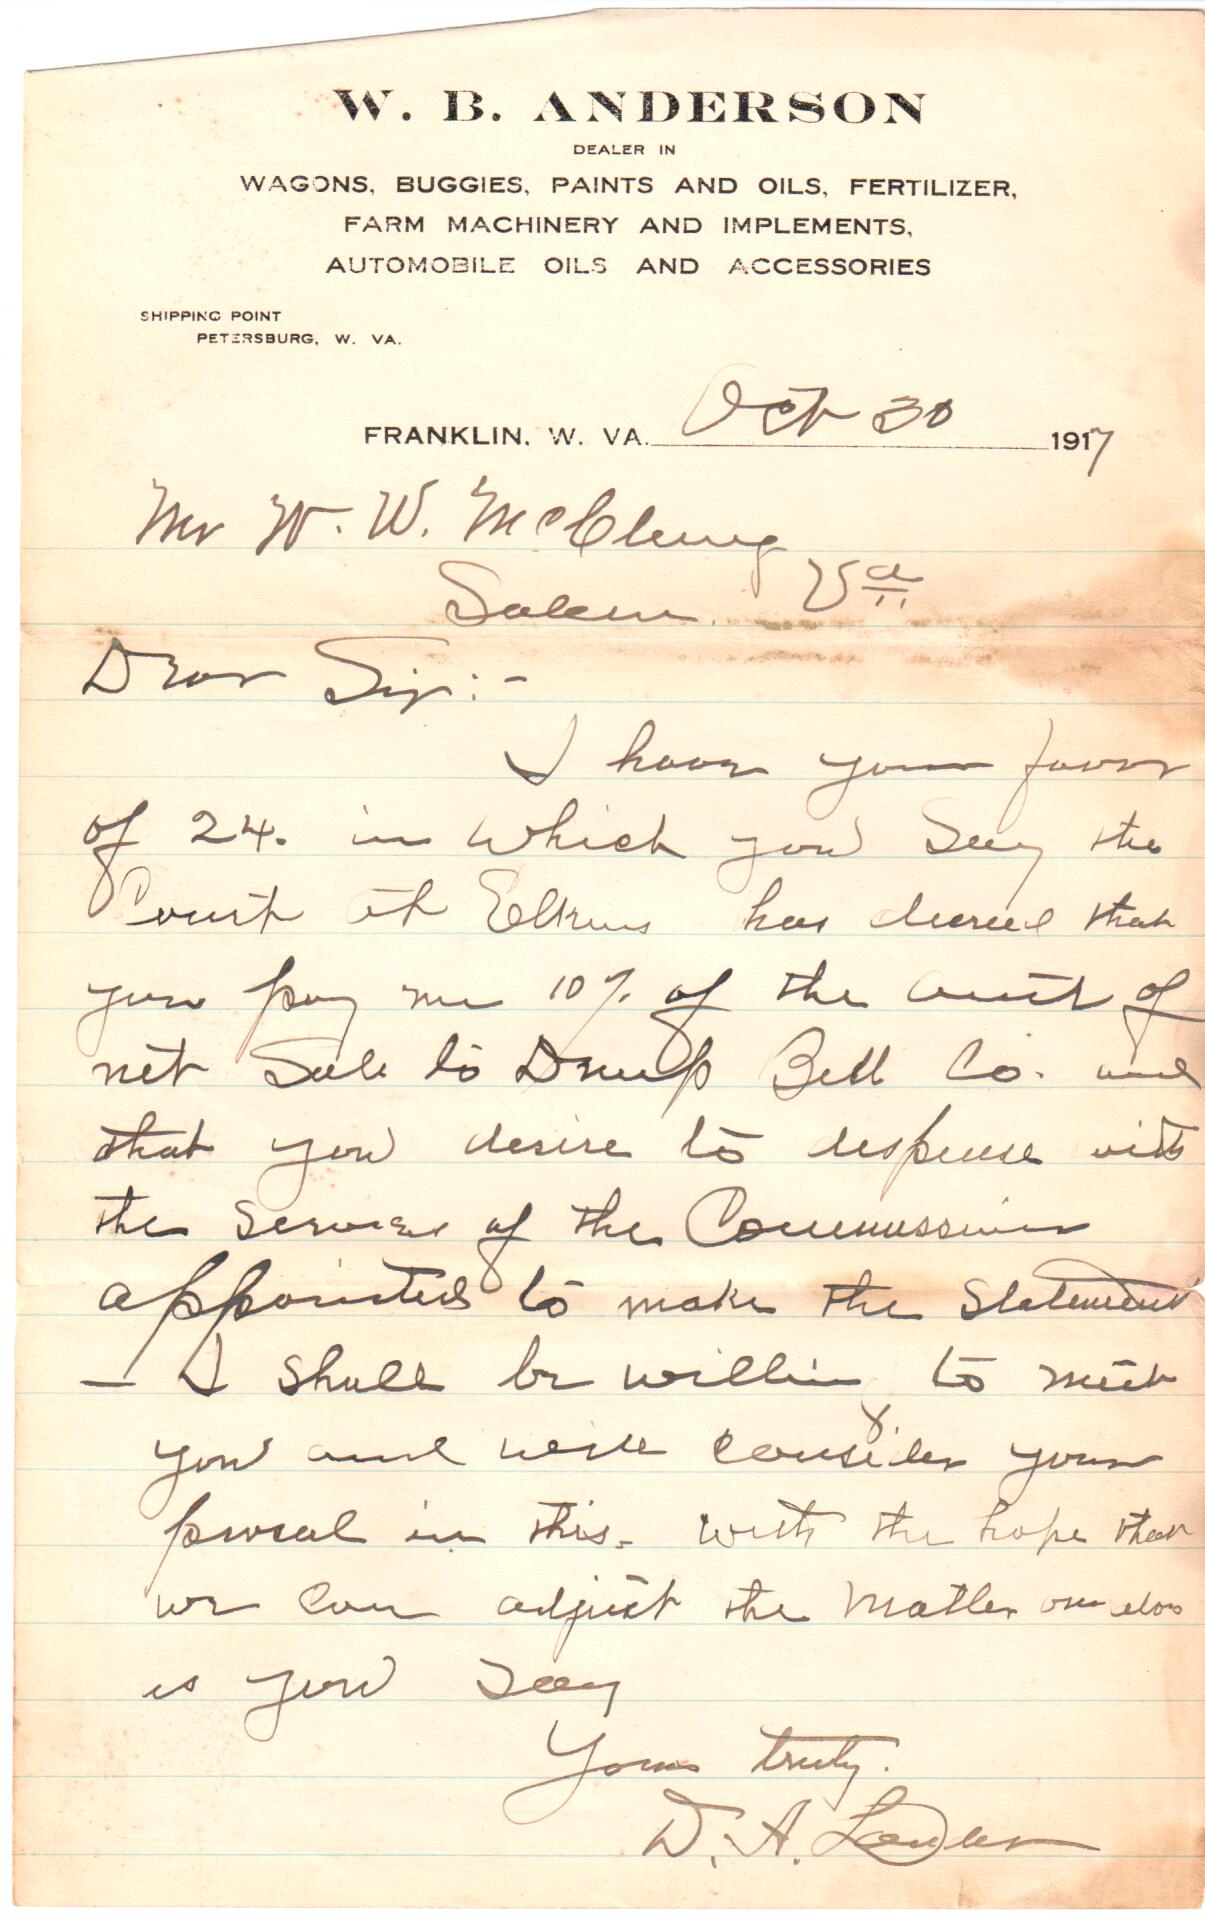 W. B. ANDERSON
DEALER IN
WAGONS, BUGGIES, PAINTS AND OILS, FERTILIZER,
FARM MACHINERY AND IMPLEMENTS,
AUTOMOBILE OILS AND ACCESSORIES
SHIPPING POINT
PETERSBURG, W. VA.
FRANKLIN, W. VA. Oct 30 1917
Mr W. W. McClung
Salem, Va
Dear Sir:-
I have your favor
of 24. in which you say the
Court at Elkins has decreed that
you pay me 10% of the of
net Sale to Bell Co. and
that you desire to dispense with
the services of the Commissioner
appointed to make the Statement
— I shall be willing to meet
you and will consider your
in this. with the hope that
we can adjust the matter
as you say
Yours truly.
D. A.